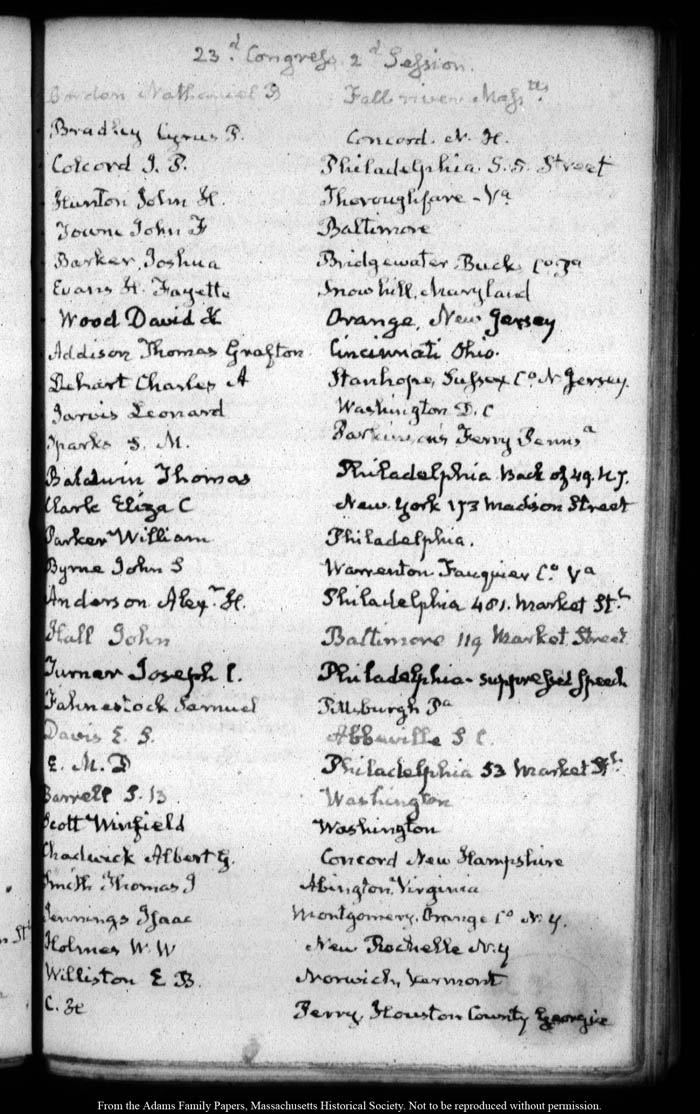 23.d Congress 2d Session.
Borden Nathaniel B Fall river Massts
Bradley Cyrus P. Concord. N. H.
Colcord J. P. Philadelphia S. 5. Street
Hunton John H. Thoroughfare - Va
Towne John F Baltimore
Barker, Joshua Bridgewater, Buck Co Pa
Evans H. Fayette Snow hill, Maryland
Wood David K Orange, New Jersey
Addison Thomas Grafton Cincinnati Ohio.
Dehart Charles A Stanhope, Sussex Co N. Jersey.
Jarvis Leonard Washington D. C
Sparks S. M. Parkinson's Ferry Pennsa
Baldwin Thomas Philadelphia Back of 49. N.7.
Clark Eliza C New York 173 Madison Street
Parker William Philadelphia.
Byrne John S Warrenton Fauquier Co Va
Anderson Alexr H. Philadelphia 481. Market St.t
Hall John Baltimore 119 Market Street
Turner Joseph C. Philadelphia - suppressed speech
Fahnestock Samuel Pittsburgh Pa
Davis E. S. Abbeville S C.
E. M. D Philadelphia 53 Market St.t
Barrell S. B Washington
Scott Winfield Washington
Chadwick Albert G. Concord New Hampshire
Smith Thomas J Abington Virginia
Jennings Isaac Montgomery. Orange Co N. Y.
Holmes W. W New Rochelle N. Y
Williston E B. Norwich, Vermont
C. H Perry, Houston County Georgia
From the Adams Family Papers, Massachusetts Historical Society. Not to be reproduced without permission.